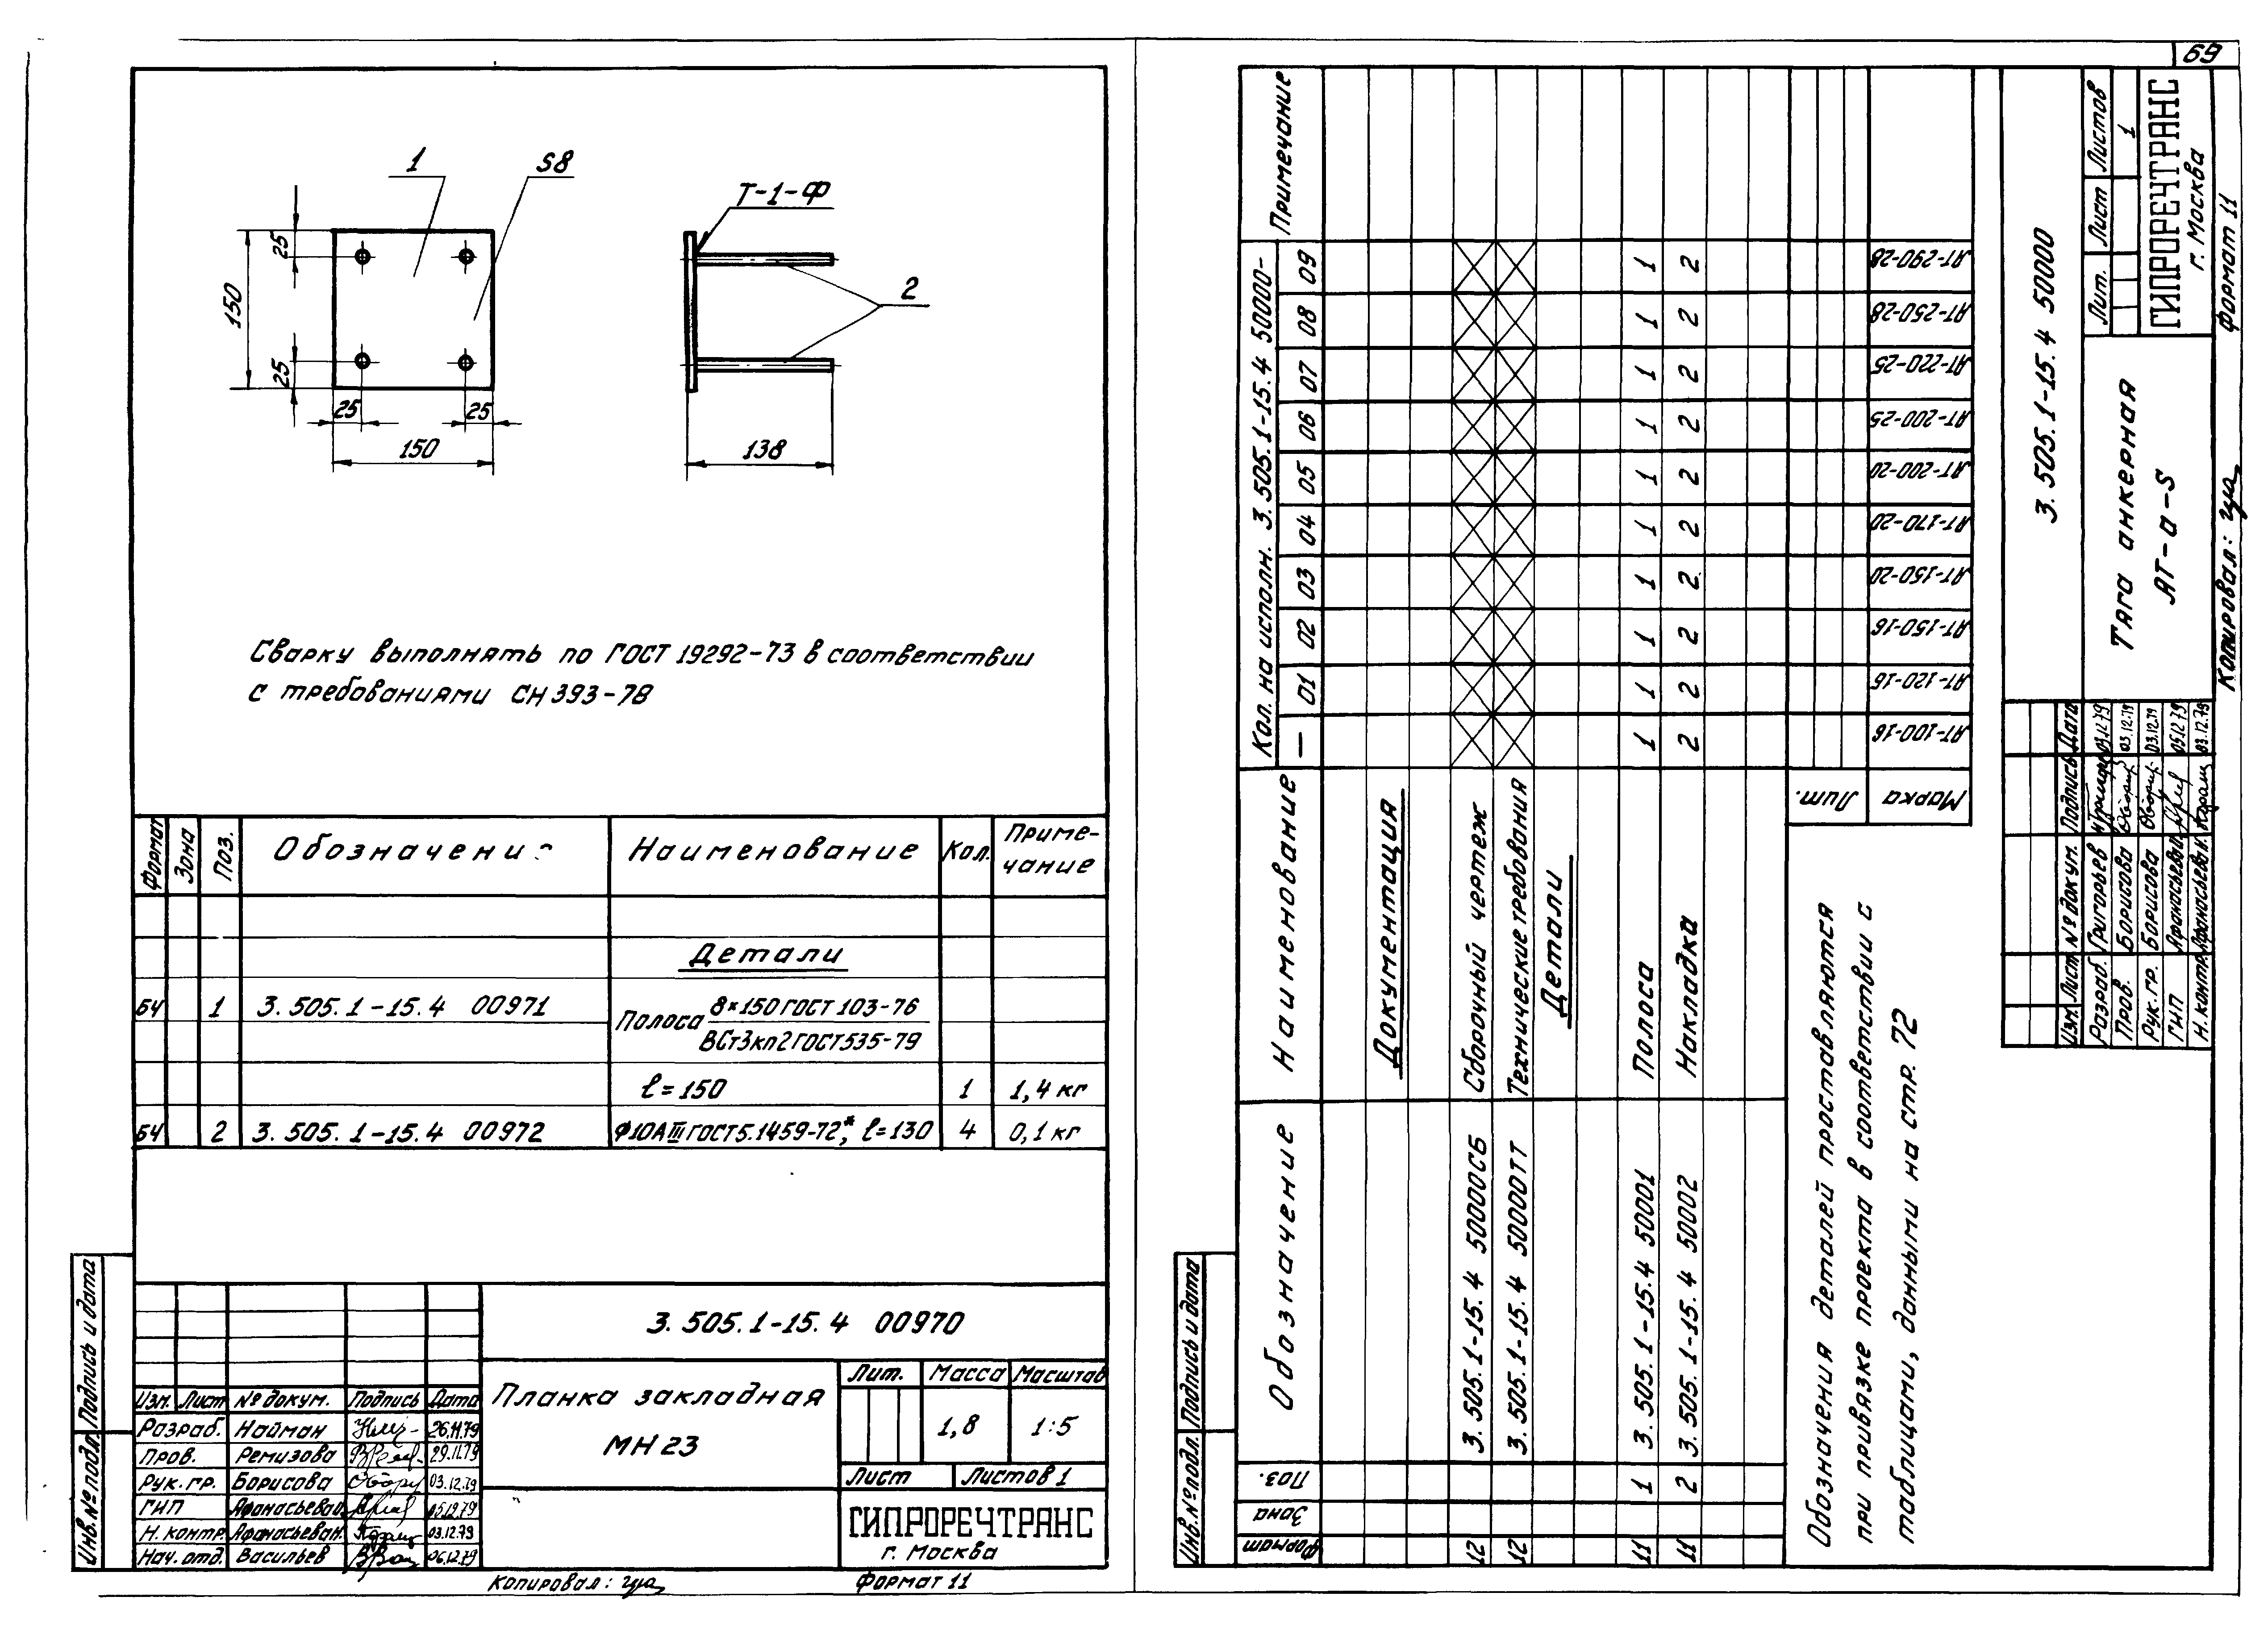 69
1
S8
Т-1-Ф
25
150
25
25
25
150
2
138
Сварку выполнять по ГОСТ 19292-73 в соответствии
с требованиями СН 393-78
Формат Зона Поз. Обозначени Наименование Кол. Приме-
чание
Детали
БЧ 1 3.505.1-15.4 00971 Полоса 8×150 ГОСТ 103-76
ВСт3кп2 ГОСТ 535-79
ℓ=150 1 1,4 кг
БЧ 2 3.505.1-15.4 00972 Ф10АIII ГОСТ 5.1459-72*, ℓ=130 4 0,1 кг
3.505.1-15.4 00970
Планка закладная
МН 23
Лит. Масса Масштаб
1,8 1:5
Лист Листов 1
ГИПРОРЕЧТРАНС
г. Москва
Изм. Лист № докум. Подпись Дата
Разраб. Найман 26.11.79
Пров. Ремизова 29.11.79
Рук. гр. Борисова 03.12.79
ГИП Афанасьева 05.12.79
Н. контр. Афанасьева Н. 03.12.79
Нач. отд. Васильев 06.12.79
Инв. № подл. Подпись и дата
Копировал:
Формат 11
Формат Зона Поз. Обозначение Наименование Кол. на исполн. 3.505.1-15.4 50000- Примечание
— 01 02 03 04 05 06 07 08 09
Документация
12 3.505.1-15.4 50000СБ Сборочный чертеж
12 3.505.1-15.4 50000ТТ Технические требования
Детали
11 1 3.505.1-15.4 50001 Полоса 1 1 1 1 1 1 1 1 1 1
11 2 3.505.1-15.4 50002 Накладка 2 2 2 2 2 2 2 2 2 2
Лит.
Марка АТ-100-16 АТ-120-16 АТ-150-16 АТ-150-20 АТ-170-20 АТ-200-20 АТ-200-25 АТ-220-25 АТ-250-28 АТ-290-28
Обозначения деталей проставляются
при привязке проекта в соответствии с
таблицами, данными на стр. 72
3.505.1-15.4 50000
Изм. Лист № докум. Подпись Дата
Разраб. Григорьев 03.12.79
Пров. Борисова 03.12.79
Рук. гр. Борисова 03.12.79
ГИП Афанасьева 05.12.79
Н. контр. Афанасьева Н. 03.12.79
Тяга анкерная
АТ-а-S
Лит. Лист Листов
1
ГИПРОРЕЧТРАНС
г. Москва
Инв. № подл. Подпись и дата
Копировал:
Формат 11